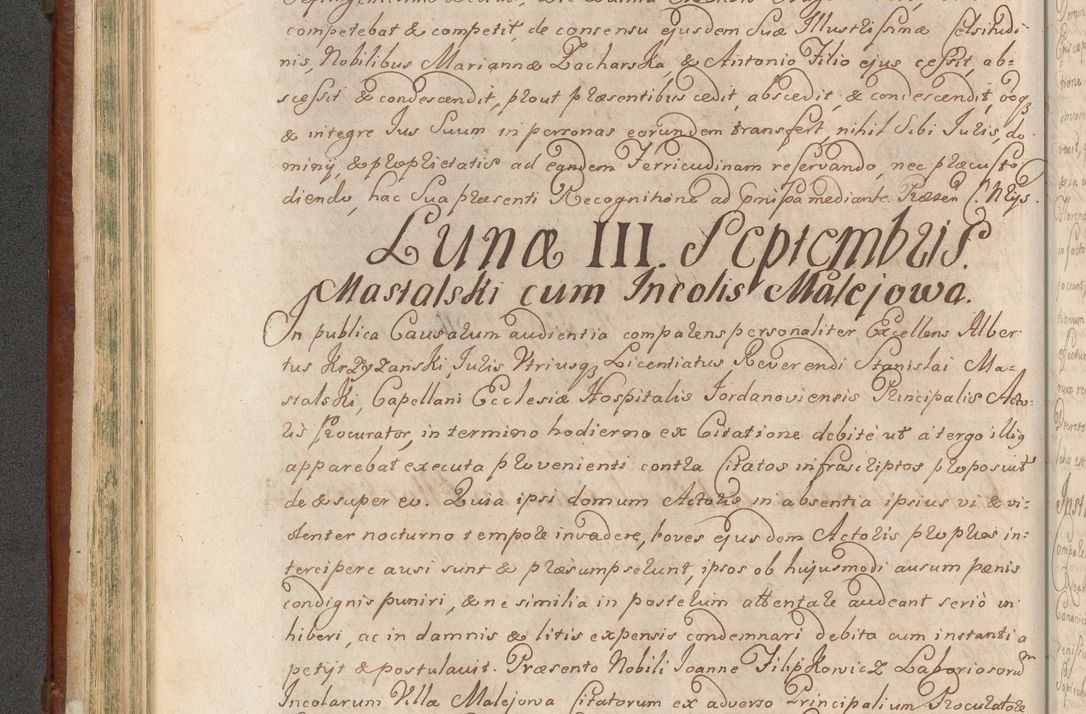 competebat & competit, de consensu ejusdem Suæ Illustrissimæ Celsitudi-
nis, Nobilibus Mariannæ Zacharska, & Antonio Filio ejus cessit, ab-
scessit & condescendit, prout præsentibus cedit, abscedit, & condescendit,
& integre Jus Suum in personas eorundem transfert, nihil Sibi Juris, do
minij, & proprietatis ad eandem Terricudinam reservando, nec præcusto
diendo, hac Sua præsenti Recognitione ad mediante.
Lunæ III. Septembris.
Mastalski cum Incolis Malejowa.
In publica Causarum audientia comparens personaliter Excellens Alber-
tus Krzyzanski, Juris Utriusq3 Licentiatus Reverendi Stanislai Ma-
stalski, Capellani Ecclesiæ Hospitalis Jordanoviensis Principalis Acto-
ris Procurator, in termino hodierno ex Citatione debitè ut à tergo illig
apparebat executa provenienti contra Citatos infrascriptos proposuit
de & super eo. Quia ipsi domum Actoris in absentia ipsius vi & vi-
olenter nocturno tempore invadere, boves ejusdem Actoris proprios in-
tercipere ausi sunt & præsumpserunt, ipsos ob hujusmodi ausum pænis
condignis puniri, & ne similia in posterum attentare audeant seriò in
hiberi, ac in damnis & litis expensis condemnari debita cum instantia
petijt & postulavit. Præsente Nobili Joanne Filipkowicz Laboriosorum
Incolarum Villæ Malejowa Citatorum ex adverso Principalium Procuratore